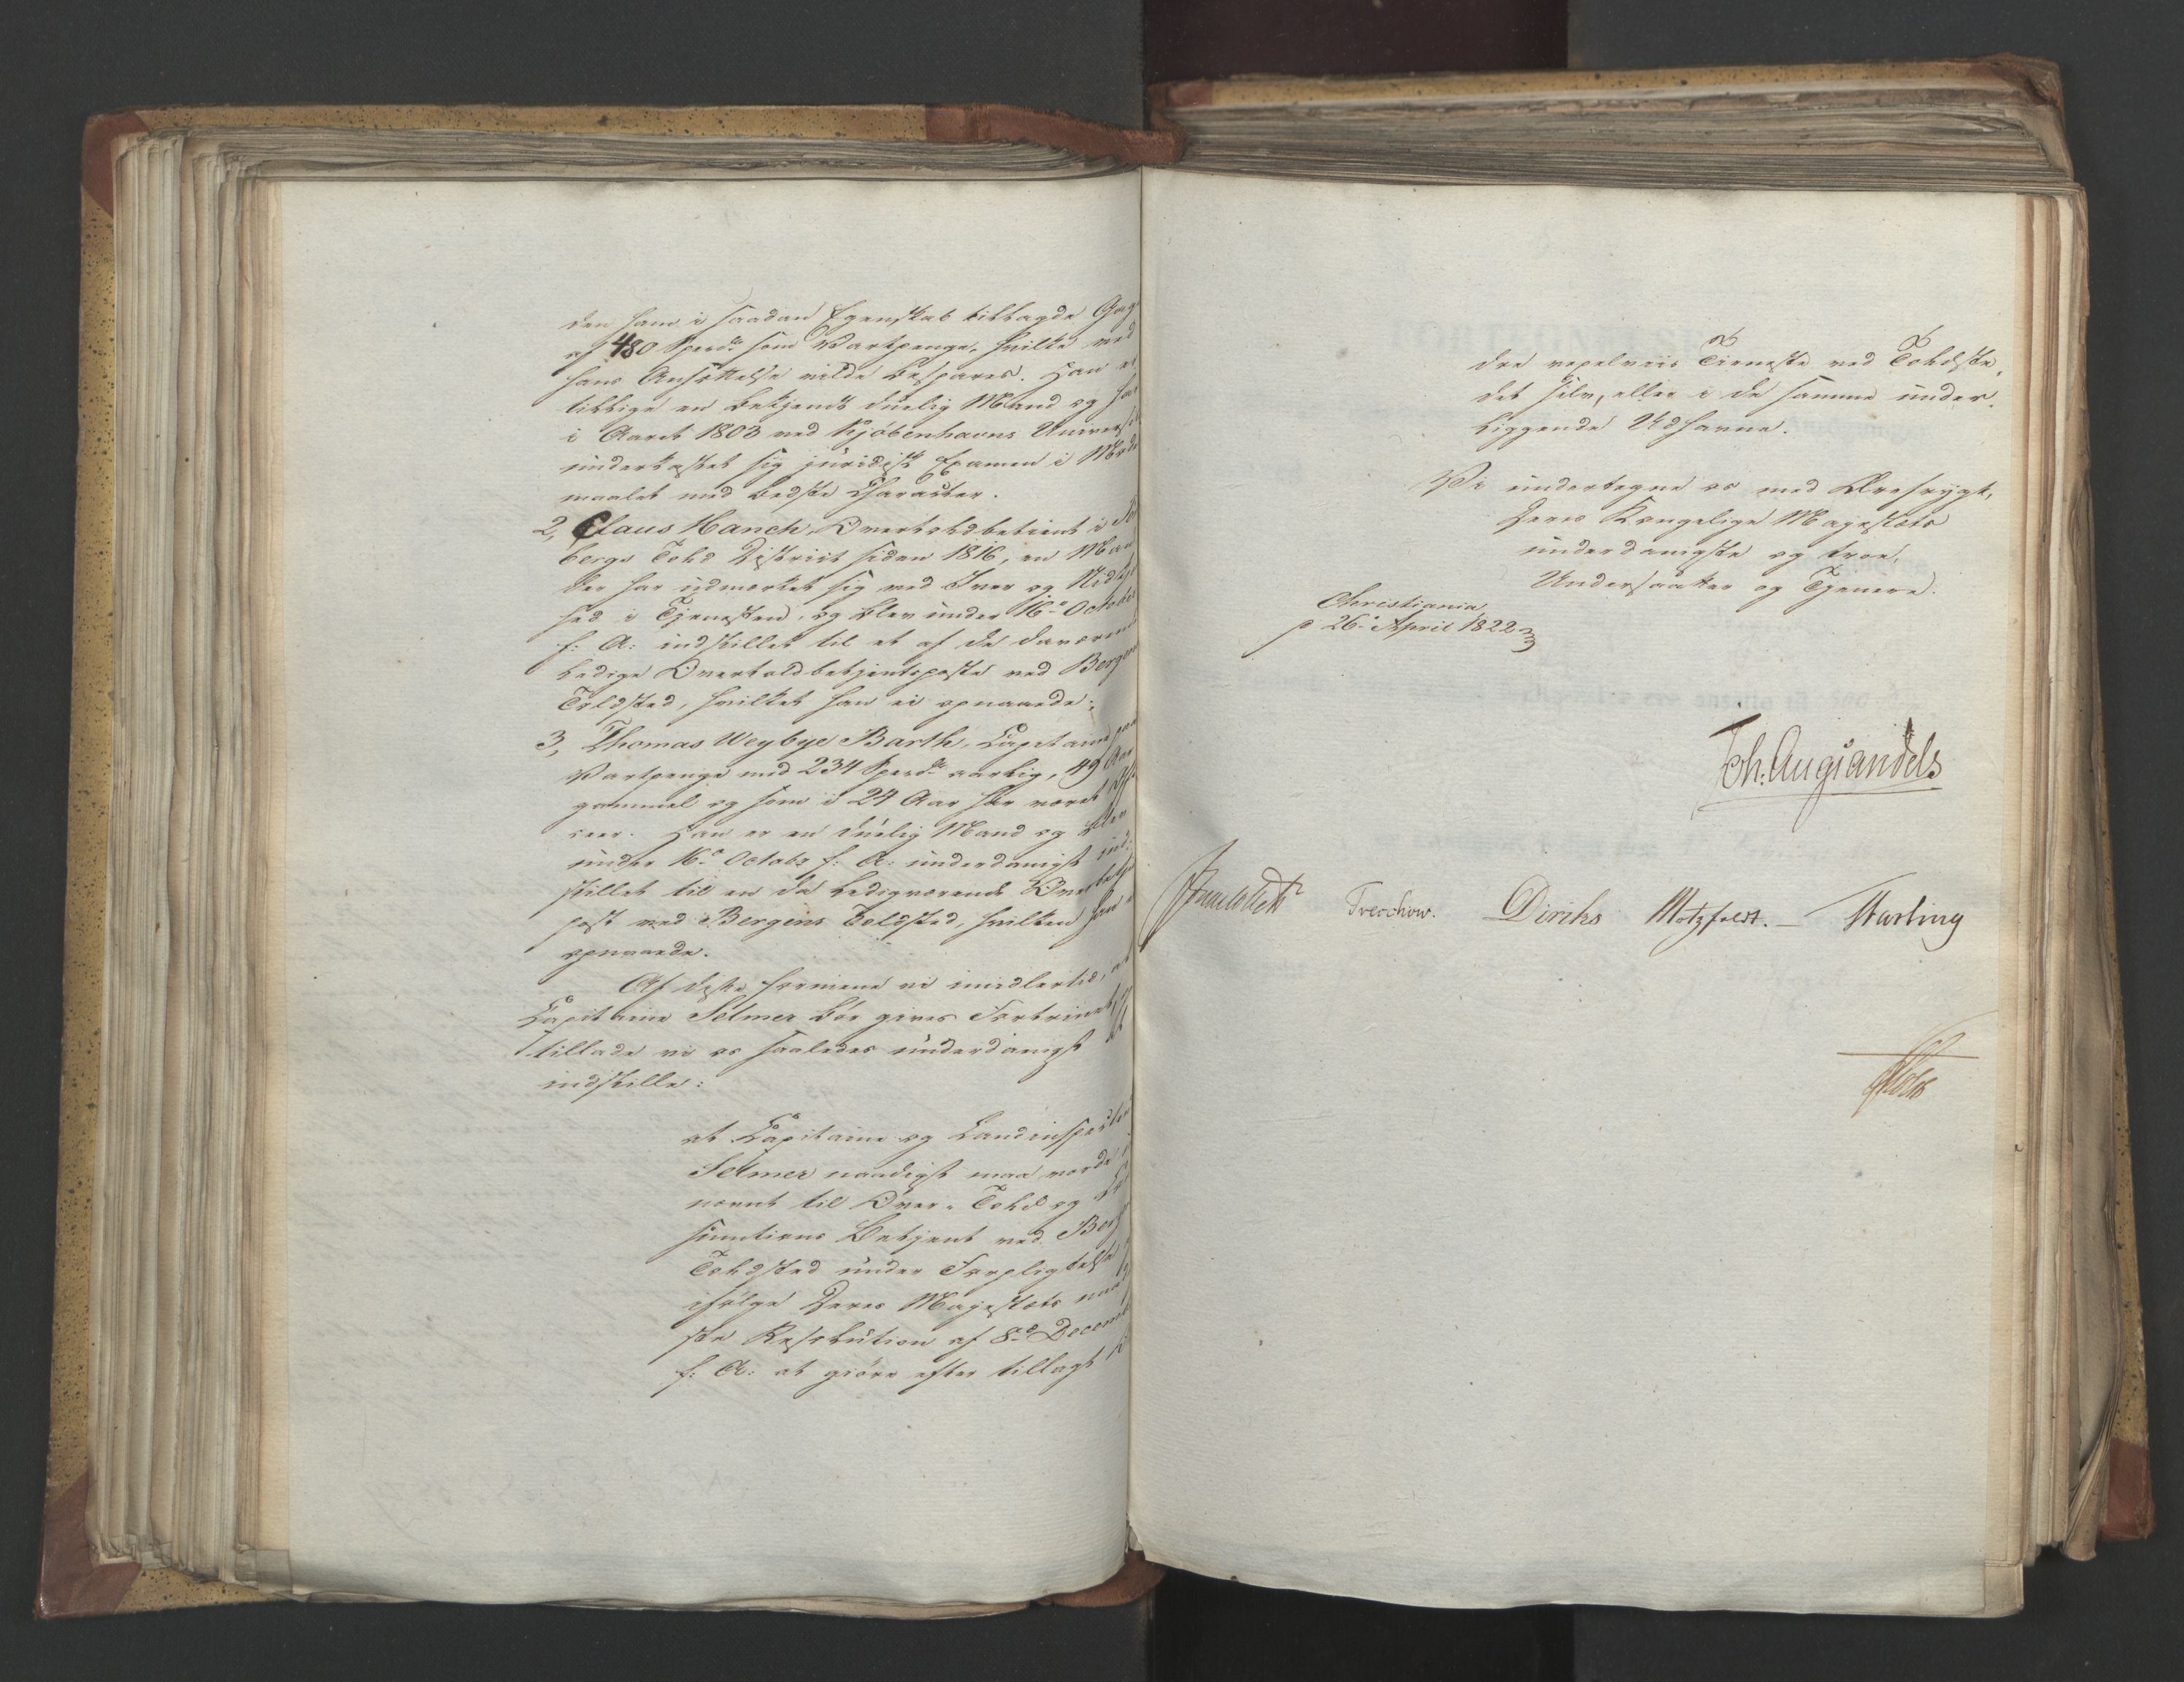 den ham i saadan Egenskab tillagde Gag
af 480 Specd. som Vartpenge, hvilke ved
hans Ansættelse vilde bespares. Han er
tillige en bekjendt duelig Mand og har
i Aaret 1803 ved Kjøbenhavns Universit
underkastet sig juridisk Examen i Moders
maalet med bedste Character.
2, Claus Hanch, Overtoldbetient i
bergs Told District siden 1816, en Mand
der har udmærket sig ved Iver og Nidkjær
hed i Tjenesten, og blev under 16de October
f: A: indstillet til et af de daværende
ledige Overtoldbetjentsposter ved Bergens
Toldsted, hvilket han ei opnaaede;
3, Thomas Weybye Barth, Capitaine paa
Vartpenge med 234 Specd. aarlig, 49 Aar
gammel og som i 24 Aar har været Offi
ceer. Han er en duelig Mand og blev
under 16de Octobr f: A: underdanigst ind-
stillet til en da ledigværende Overbetjent
post ved Bergens Toldsted, hvilken han ei
opnaaede.
Af disse formene vi imidlertid, at
Capitaine Selmer bør gives Fortrinet og
tillade vi os saaledes underdanigst at
indstille:
at Capitaine og Landinspecteur
Selmer naadigst maa vorde
nævnt til Over-Told og Con
sumtions Betjent ved Bergens
Toldsted under Forpligtelse
ifølge Deres Majestæts naadig
ste Resolution af 8de Decemb
f: A: at giøre efter tillagt
dre vexelviis Tieneste ved Toldste,
det selv, eller i de samme under,
liggende Udhavne.
Vi undertegne os med Ærefrygt,
Deres Kongelige Majestæts
underdanigste og troe,
Undersaatter og Tjenere.
Christiania
p 26de April 1822
Joh: Aug: Sandels
Treschow. Diriks Motzfeldt. Krebting